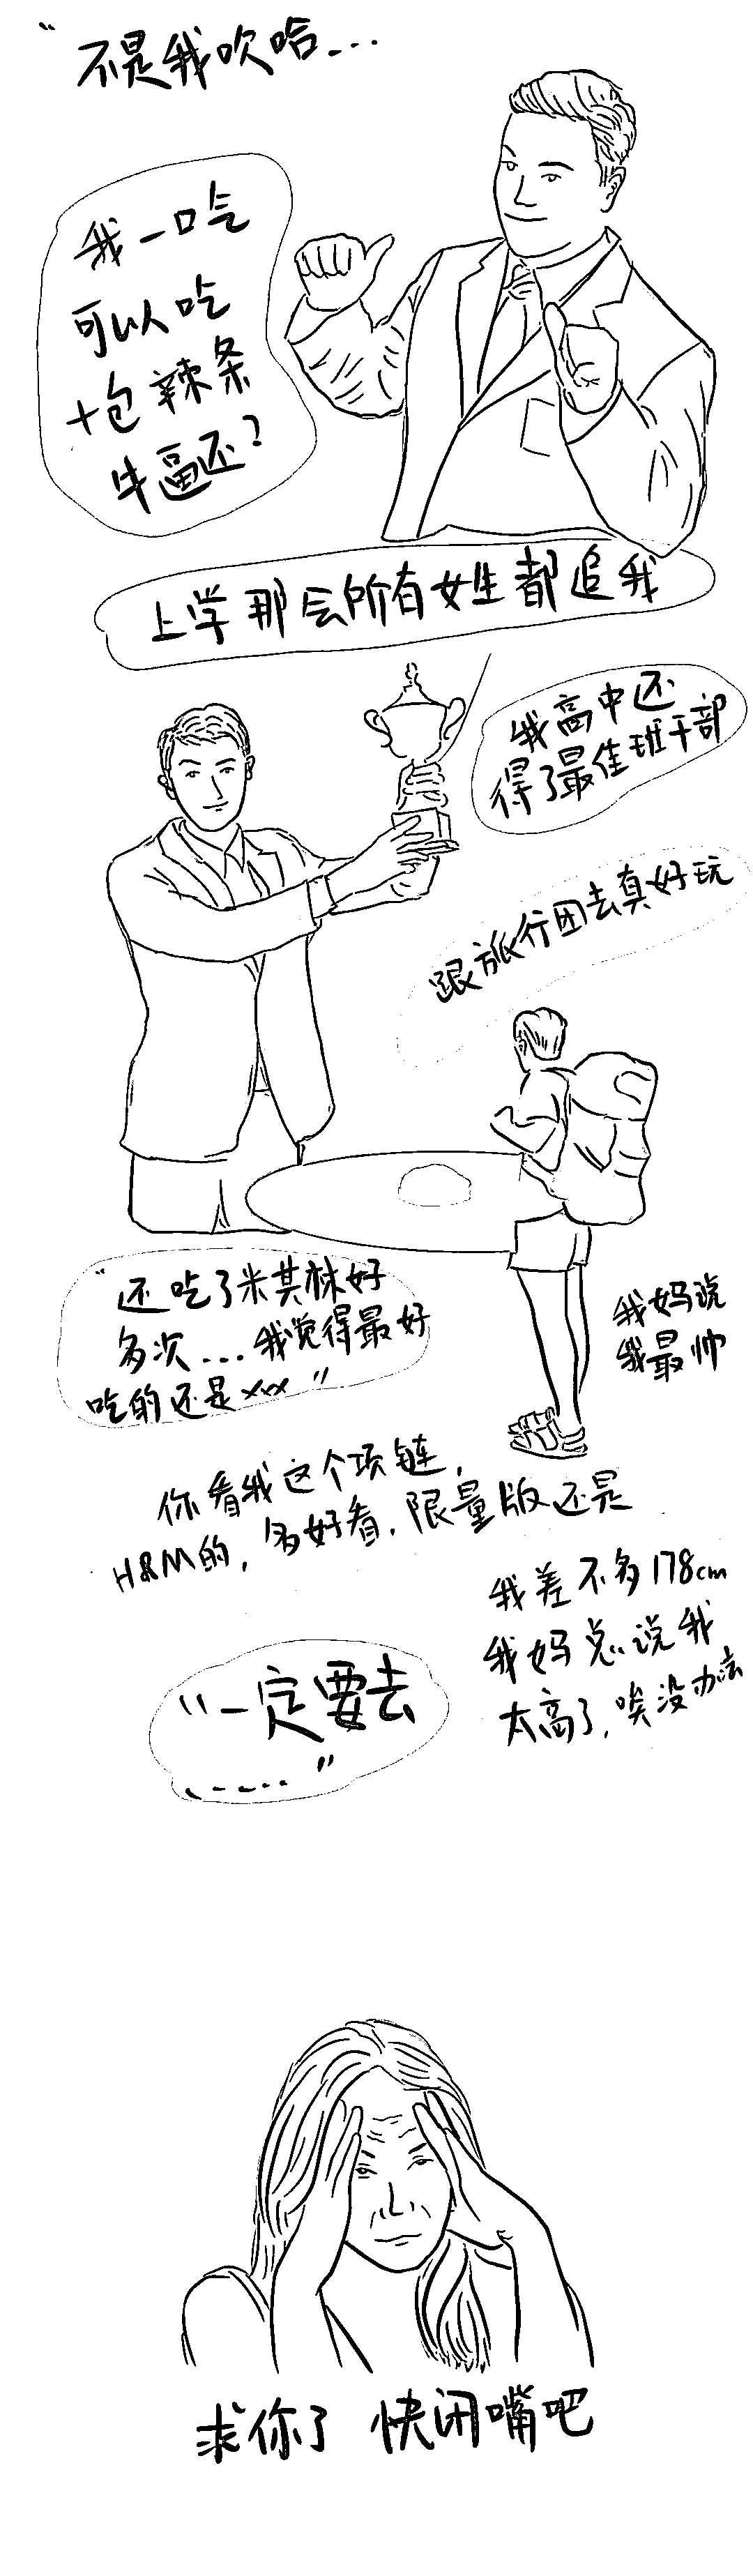 “不是我吹哈...
我一口气
可以吃
十包辣条
牛逼还？
上学那会所有女生都追我
我高中还
得了最佳班干部
跟旅行团去真好玩
“还吃了米其林好
多次...我觉得最好
吃的还是xxx”
我妈说
我最帅
你看我这个项链，
H&M的，多好看，限量版还是
我差不多178cm
我妈总说我
太高了，唉没办法
“一定要去
......”
求你了 快闭嘴吧